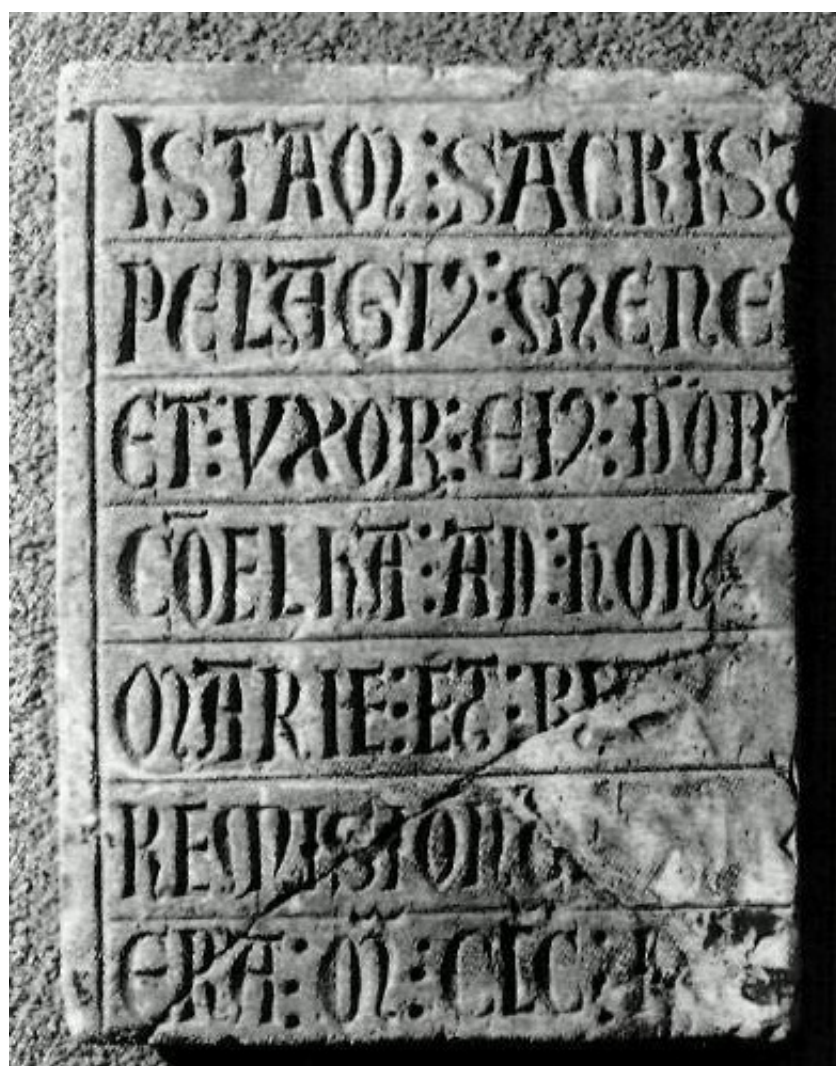 ISTAM : SACRIST
PELAGIꝰ : MENE
ET : VXOR : EIꝰ : DORT
CŌELHA : AD : HON
MARIE : ET :
REMISION
ERA : M̃ : CL̃C :